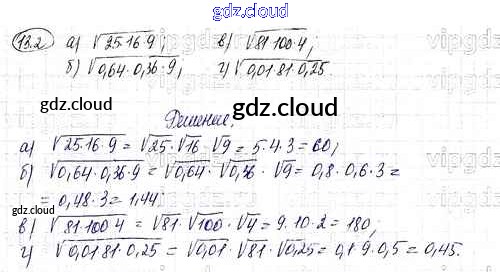 gdz.cloud
13.2 а) √25·16·9; в) √81·100·4;
б) √0,64·0,36·9; г) √0,01·81·0,25
gdz.cloud gdz.cloud
gdz.cloud
Решение:
а) √25·16·9 = √25·√16·√9 = 5·4·3 = 60;
б) √0,64·0,36·9 = √0,64·√0,36·√9 = 0,8·0,6·3 =
= 0,48·3 = 1,44;
gdz.cloud
в) √81·100·4 = √81·√100·√4 = 9·10·2 = 180;
г) √0,01·81·0,25 = √0,01·√81·√0,25 = 0,1·9·0,5 = 0,45.
gdz.cloud